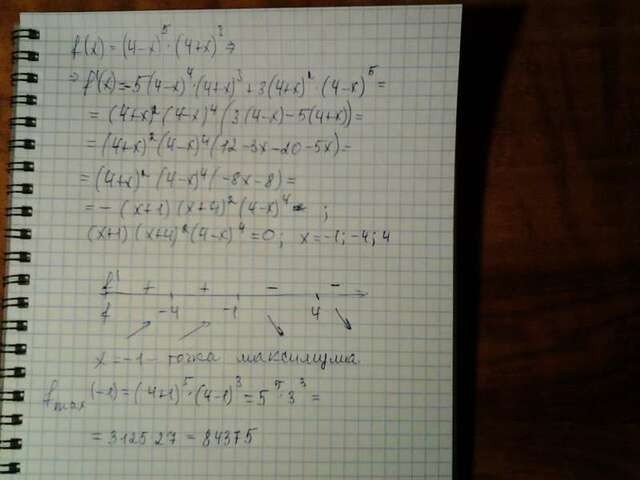 f(x) = (4-x)⁵ · (4+x)³ ⇒
⇒ f'(x) = -5(4-x)⁴ · (4+x)³ + 3(4+x)² · (4-x)⁵ =
= (4+x)² (4-x)⁴ (3(4-x) - 5(4+x)) =
= (4+x)² (4-x)⁴ (12 - 3x - 20 - 5x) =
= (4+x)² (4-x)⁴ (-8x - 8) =
= - (x+1) (x+4)² (4-x)⁴ ;
(x+1) (x+4)² (4-x)⁴ = 0 ; x = -1; -4; 4
f' + + - -
f -4 -1 4
x = -1 - точка максимума
fmax (-1) = (4+1)⁵ · (4-1)³ = 5⁵ · 3³ =
= 3125 · 27 = 84375